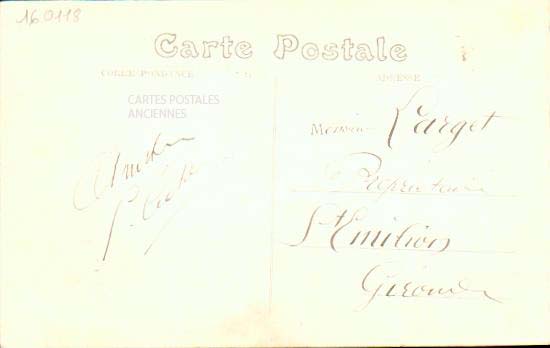 160118
Carte Postale
CORRESPONDANCE
ADRESSE
CARTES POSTALES
ANCIENNES
Monsieur Larget
Propriétaire
St Emilion
Gironde